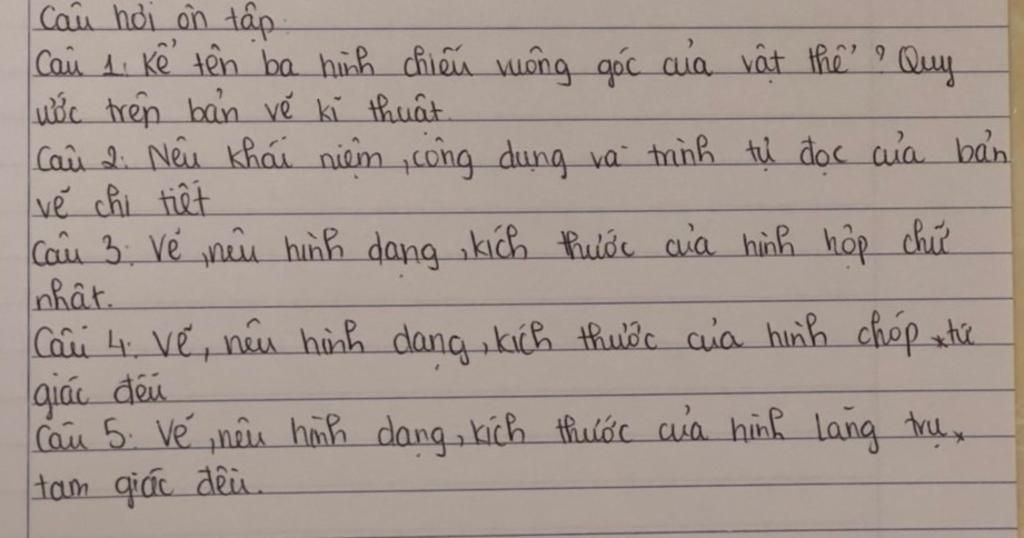 Câu hỏi ôn tập.
Câu 1: Kể tên ba hình chiếu vuông góc của vật thể? Quy
ước trên bản vẽ kĩ thuật.
Câu 2: Nêu khái niệm, công dụng và trình tự đọc của bản
vẽ chi tiết
Câu 3: Vẽ, nêu hình dạng, kích thước của hình hộp chữ
nhật.
Câu 4: Vẽ, nêu hình dạng, kích thước của hình chóp tứ
giác đều
Câu 5: Vẽ, nêu hình dạng, kích thước của hình lăng trụ
tam giác đều.